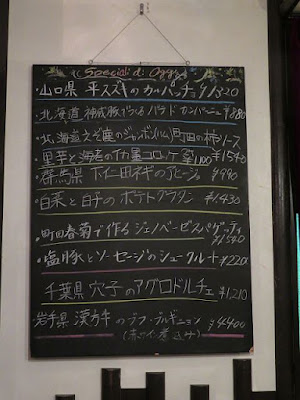 Special di Oggi
・山口県 平スズキのカルパッチョ ¥1320
・北海道 神威豚でつくるパテドカンパーニュ ¥880
・北海道えぞ鹿のジャンボン(ハム)町田の柿ソース
・里芋と海老のカニコロッケ ¥1540
・群馬県 下仁田ネギのアヒージョ ¥990
・白菜と白子のポテトグラタン ¥1430
・町田春菊で作るジェノベーゼスパゲッティ ¥1540
・塩豚とソーセージのシュークルート ¥2200
千葉県 穴子のアグロドルチェ ¥1,210
岩手県 漢方牛のブフ・ブルギニョン ¥4400
(赤ワイン煮込み)